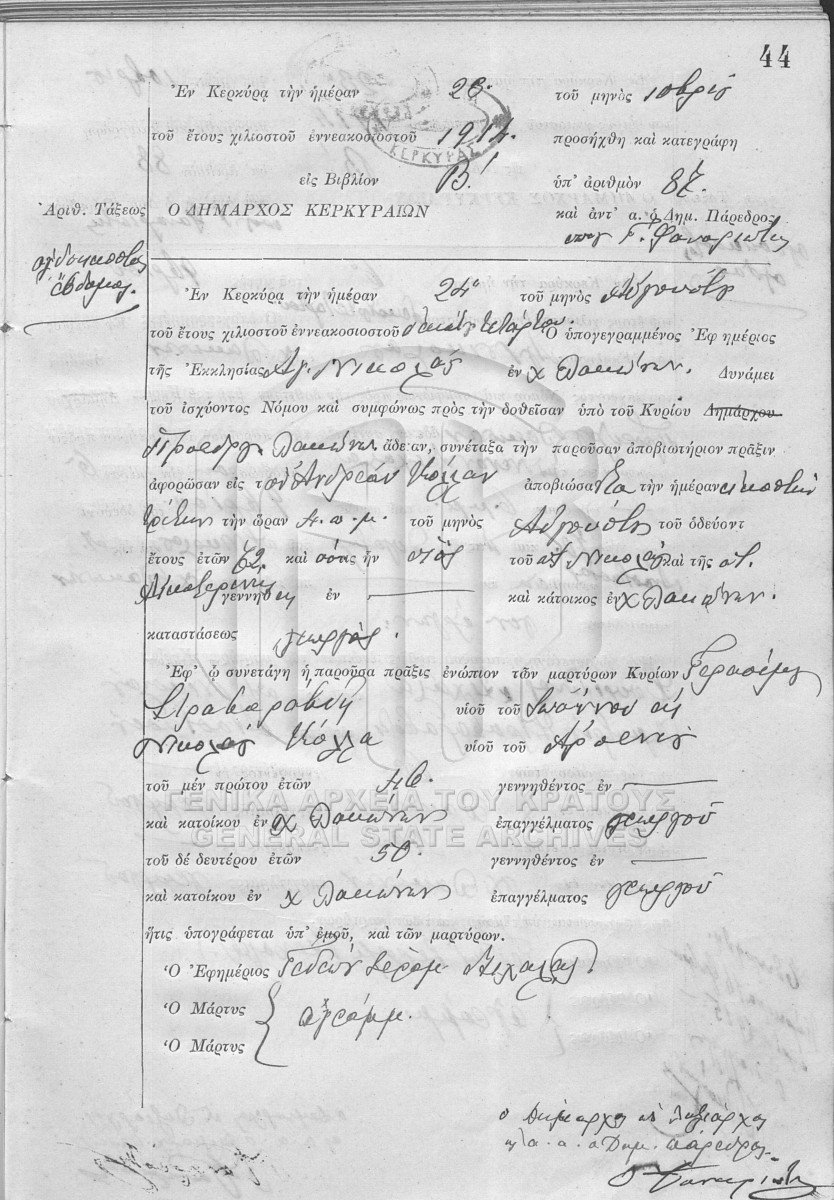 44
Ἐν Κερκύρᾳ τὴν ἡμέραν 26. τοῦ μηνὸς
τοῦ ἔτους χιλιοστοῦ ἐννεακοσιοστοῦ 1914. προσήχθη καὶ κατεγράφη
ΚΕΡΚΥΡΑΣ
εἰς Βιβλίον Β! ὑπ' ἀριθμὸν 87.
Ἀριθ. Τάξεως Ο ΔΗΜΑΡΧΟΣ ΚΕΡΚΥΡΑΙΩΝ καὶ ἀντ' α. ὁ Δημ. Πάρεδρος
Γ. Φαναριώτης
ὀγδοηκοστὸς
ἕβδομος.
Ἐν Κερκύρᾳ τὴν ἡμέραν 24 τοῦ μηνὸς Αὐγούστου
τοῦ ἔτους χιλιοστοῦ ἐννεακοσιοστοῦ δεκάτου τετάρτου. Ὁ ὑπογεγραμμένος Ἐφημέριος
τῆς Ἐκκλησίας Ἁγ. Νικολάου ἐν χ Λακώνων. Δυνάμει
τοῦ ἰσχύοντος Νόμου καὶ συμφώνως πρὸς τὴν δοθεῖσαν ὑπὸ τοῦ Κυρίου Δημάρχου
Προέδρου Λακώνων ἄδειαν, συνέταξα τὴν παροῦσαν ἀποβιωτήριον πρᾶξιν
ἀφορῶσαν εἰς τὸν Ἀνδρέαν Κόλλαν ἀποβιώσαντα τὴν ἡμέραν εἰκοστὴν
τρίτην τὴν ὥραν π. μ. τοῦ μηνὸς Αὐγούστου τοῦ ὁδεύοντ
ἔτους ἐτῶν 62 καὶ ὅστις ἦν υἱὸς τοῦ Νικολάου καὶ τῆς
Αἰκατερίνης γεννηθ ἐν — καὶ κάτοικος ἐν χ Λακώνων.
καταστάσεως γεωργὸς.
Ἐφ' ᾧ συνετάγη ἡ παροῦσα πρᾶξις ἐνώπιον τῶν μαρτύρων Κυρίων Γερασίμου
υἱοῦ τοῦ Ἰωάννου
Νικολάου Κόλλα υἱοῦ τοῦ Ἀρσενίου
τοῦ μὲν πρώτου ἐτῶν 46. γεννηθέντος ἐν —
ΓΕΝΙΚΑ ΑΡΧΕΙΑ ΤΟΥ ΚΡΑΤΟΥΣ
καὶ κατοίκου ἐν χ Λακώνων ἐπαγγέλματος γεωργοῦ
GENERAL STATE ARCHIVES
τοῦ δὲ δευτέρου ἐτῶν 50. γεννηθέντος ἐν —
καὶ κατοίκου ἐν χ Λακώνων ἐπαγγέλματος γεωργοῦ
ἥτις ὑπογράφεται ὑπ' ἐμοῦ, καὶ τῶν μαρτύρων.
Ὁ Ἐφημέριος Γεδεὼν Ἱερομ. Μιχαλᾶς
Ὁ Μάρτυς ἀγράμμ.
Ὁ Μάρτυς
ὁ Δήμαρχος ὡς Ληξίαρχος
κ α. α. ὁ Δημ. πάρεδρος